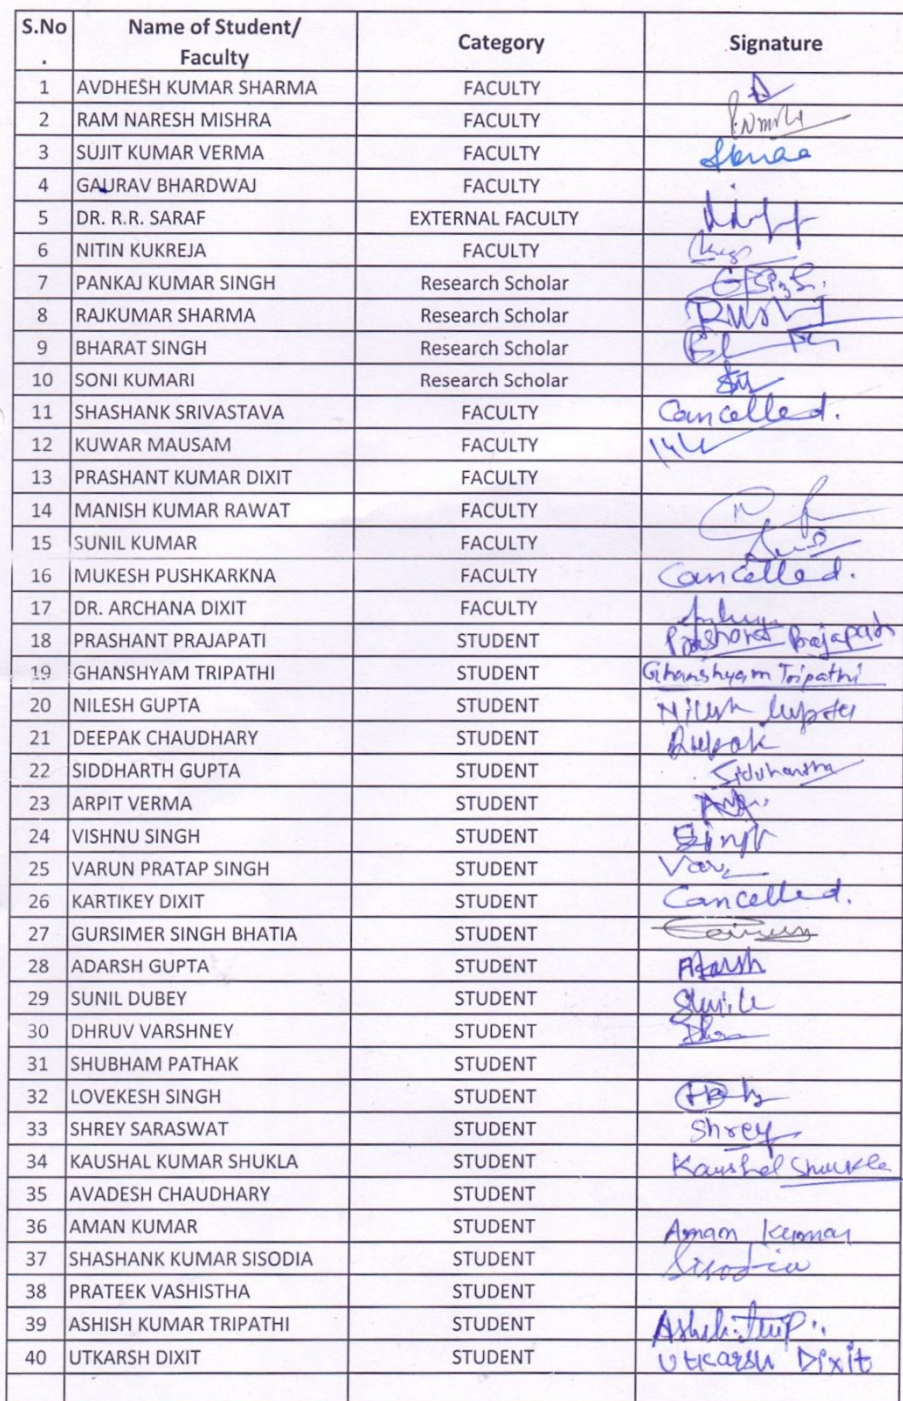 S.No. Name of Student/ Faculty Category Signature
1 AVDHESH KUMAR SHARMA FACULTY
2 RAM NARESH MISHRA FACULTY
3 SUJIT KUMAR VERMA FACULTY
4 GAURAV BHARDWAJ FACULTY
5 DR. R.R. SARAF EXTERNAL FACULTY
6 NITIN KUKREJA FACULTY
7 PANKAJ KUMAR SINGH Research Scholar
8 RAJKUMAR SHARMA Research Scholar
9 BHARAT SINGH Research Scholar
10 SONI KUMARI Research Scholar
11 SHASHANK SRIVASTAVA FACULTY Cancelled.
12 KUWAR MAUSAM FACULTY
13 PRASHANT KUMAR DIXIT FACULTY
14 MANISH KUMAR RAWAT FACULTY
15 SUNIL KUMAR FACULTY
16 MUKESH PUSHKARKNA FACULTY Cancelled.
17 DR. ARCHANA DIXIT FACULTY
18 PRASHANT PRAJAPATI STUDENT Prashant Prajapati
19 GHANSHYAM TRIPATHI STUDENT Ghanshyam Tripathi
20 NILESH GUPTA STUDENT Nilesh Gupta
21 DEEPAK CHAUDHARY STUDENT Deepak
22 SIDDHARTH GUPTA STUDENT
23 ARPIT VERMA STUDENT
24 VISHNU SINGH STUDENT
25 VARUN PRATAP SINGH STUDENT
26 KARTIKEY DIXIT STUDENT Cancelled.
27 GURSIMER SINGH BHATIA STUDENT
28 ADARSH GUPTA STUDENT Adarsh
29 SUNIL DUBEY STUDENT
30 DHRUV VARSHNEY STUDENT
31 SHUBHAM PATHAK STUDENT
32 LOVEKESH SINGH STUDENT
33 SHREY SARASWAT STUDENT Shrey
34 KAUSHAL KUMAR SHUKLA STUDENT Kaushal Shukla
35 AVADESH CHAUDHARY STUDENT
36 AMAN KUMAR STUDENT Aman Kumar
37 SHASHANK KUMAR SISODIA STUDENT Sisodia
38 PRATEEK VASHISTHA STUDENT
39 ASHISH KUMAR TRIPATHI STUDENT
40 UTKARSH DIXIT STUDENT Utkarsh Dixit